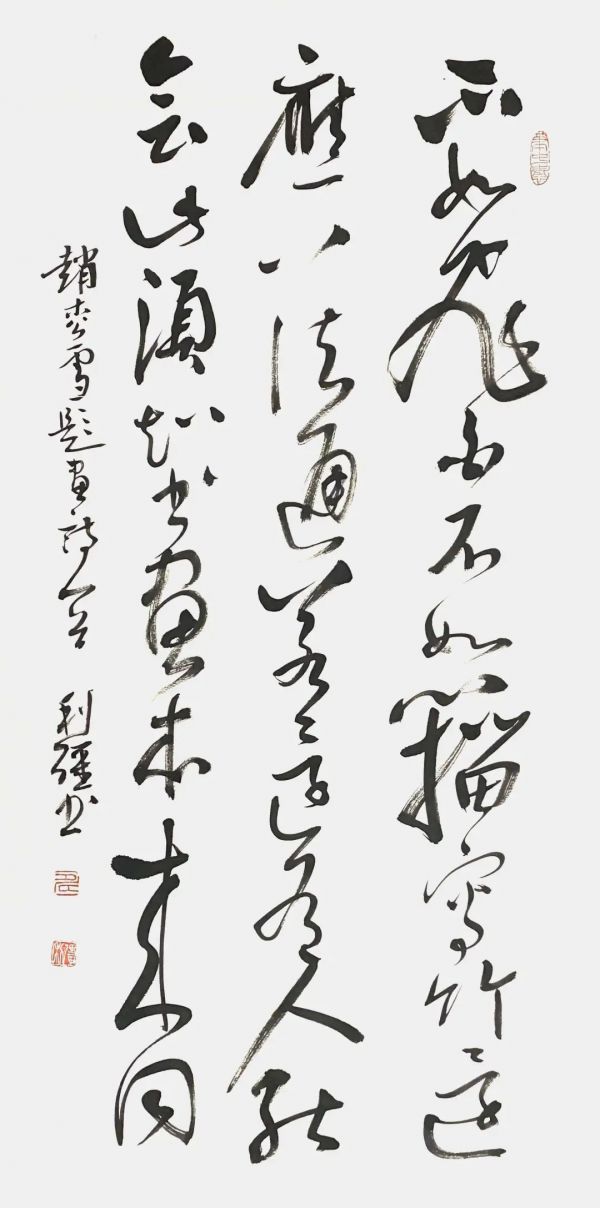 石如飛白木如籀寫竹還
應八法通若還有人能
會此須知書畫本來同
趙松雪題畫詩一首 利疆書